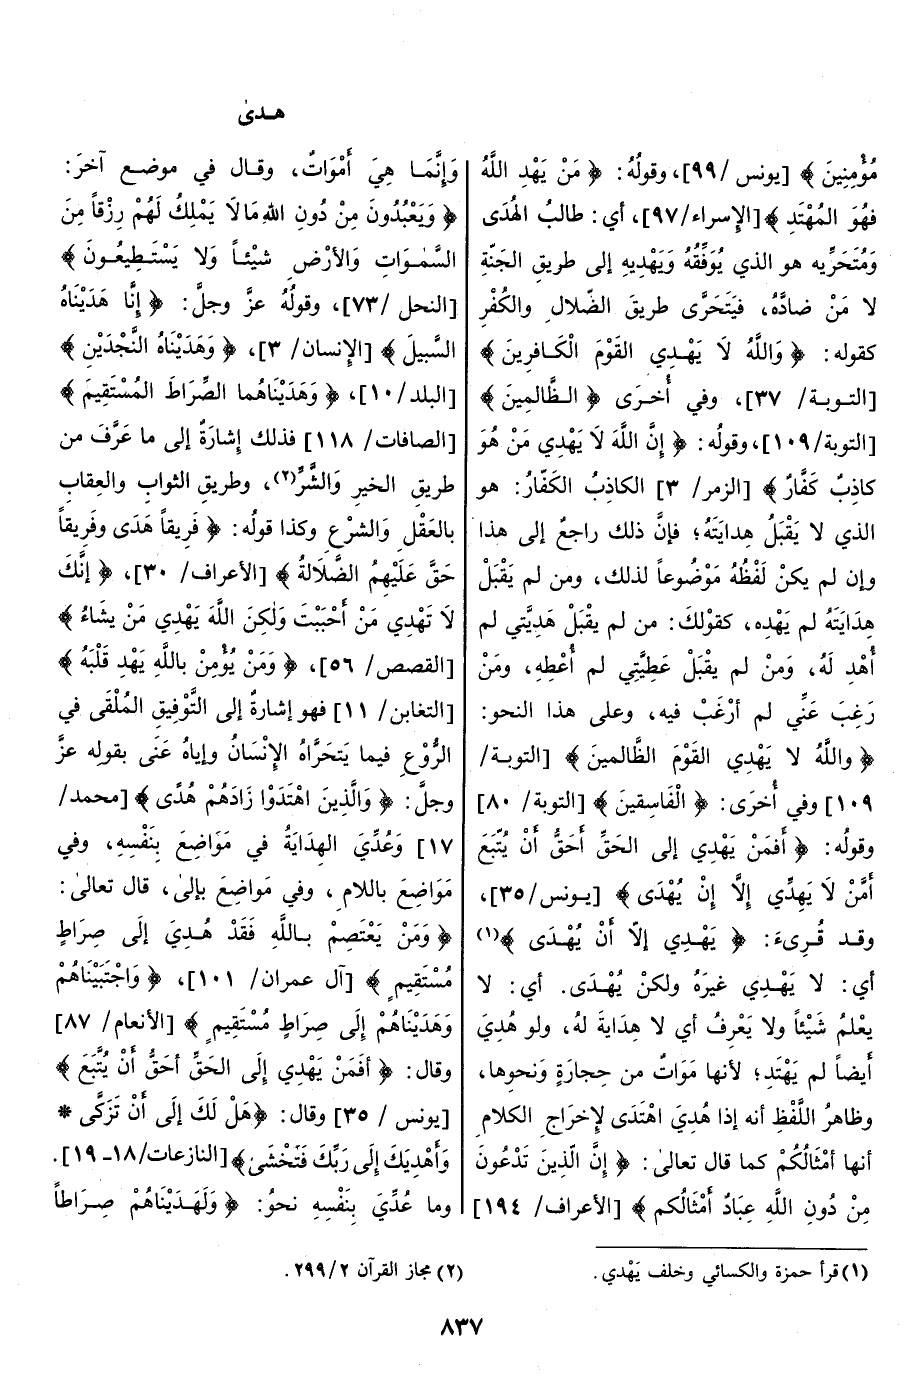 هـدىٰ
مُؤْمِنِينَ ﴾ [يونس /٩٩]، وقولُهُ: ﴿ مَنْ يَهْدِ اللَّهُ
فَهُوَ المُهْتَدِ ﴾[الإسراء/٩٧]، أي: طالبُ الهُدَى
وَمُتَحَرِّيه هو الذي يُوَفِّقُهُ وَيَهْدِيهِ إلى طريقِ الجَنَّةِ
لا مَنْ ضادَّهُ، فَيَتَحَرَّى طريقَ الضّلالِ والكُفْرِ
كقوله: ﴿ وَاللَّهُ لَا يَهْـدِي القَوْمَ الْكَـافِرِينَ ﴾
[التـوبـة/ ٣٧]، وفي أُخـرَى ﴿ الـظَّالِمِينَ ﴾
[التوبة/١٠٩]، وقولُه: ﴿ إِنَّ اللَّهَ لَا يَهْدِي مَنْ هُوَ
كاذِبٌ كَفَّارٌ ﴾ [الزمر/ ٣] الكاذِبُ الكَفّارُ: هو
الذي لا يَقْبَلُ هِدايَتَهُ؛ فإنَّ ذلك راجعٌ إلى هذا
وإن لم يكنْ لَفْظُهُ مَوْضُوعاً لذلك، ومن لم يَقْبَلْ
هِدَايَتَهُ لم يَهْدِه، كقوْلكَ: من لم يقْبَلْ هَدِيَّتي لم
أُهْدِ لَهُ، وَمَنْ لم يقْبَلْ عَطِيَّتِي لم أُعْطِهِ، ومَنْ
رَغِبَ عَنِّي لم أرْغَبْ فيه، وعلى هذا النحو:
﴿ واللَّهُ لا يَهْدِي القَوْمَ الظَّالمينَ ﴾ [التوبـة/
١٠٩] وفي أُخرَى: ﴿ الْفَاسِقينَ ﴾ [التوبة/ ٨٠]
وقولُه: ﴿ أَفَمَنْ يَهْدِي إلى الحَقِّ أَحَقُّ أَنْ يُتّبَعَ
أَمَّنْ لَا يَهِدِّي إِلَّا إِنْ يُهْدَى ﴾ [يـونس/٣٥]،
وقـد قُـرِىءَ: ﴿ يَهْـدِي إلاّ أَنْ يُهْدَى ﴾(١)
أي: لا يَهْـدِي غيرَهُ ولكنْ يُهْدَى. أي: لا
يعْلمُ شَيْئاً ولا يَعْرِفُ أي لا هِدَايةَ لهُ، ولو هُدِيَ
أيضاً لم يَهْتَدِ؛ لأنها مَوَاتٌ من حِجارَةٍ وَنحوِها،
وظاهرُ اللَّفْظِ أنه إذا هُدِيَ اهْتَدَى لإخراجِ الكلامِ
أنها أَمْثَالُكُمْ كما قال تعالىٰ: ﴿ إِنَّ الَّذِينَ تَدْعُونَ
مِنْ دُونِ اللَّهِ عِبَادٌ أَمْثَالُكم ﴾ [الأعراف/ ١٩٤]
وَإِنَّمَا هِيَ أَمْوَاتٌ، وقـال في موضـع آخرَ:
﴿ وَيَعْبُدُونَ مِنْ دُونِ اللّٰهِ مَا لَا يَمْلِكُ لَهُمْ رِزْقاً مِنَ
السَّمٰوَاتِ وَالأرْضِ شَيْئـاً وَلا يَسْتَـطِيعُـونَ ﴾
[النحل /٧٣]، وقولُهُ عزَّ وجلَّ: ﴿ إِنَّا هَدَيْنَاهُ
السَّبِيلَ ﴾ [الإنسان/ ٣]، ﴿ وَهَدَيْنَاهُ النَّجْدَيْنِ ﴾
[البلد/١٠]، ﴿ وَهَدَيْنَاهُما الصِّرَاطَ المُسْتَقِيمَ ﴾
[الصافات/ ١١٨] فذلك إشارَةٌ إلى ما عَرَّفَ من
طريقِ الخيرِ وَالشَّرِّ(٢)، وطريقِ الثوابِ والعِقابِ
بالعَقْلِ وَالشرْعِ وكذا قولُه: ﴿ فَرِيقاً هَدَى وفَرِيقاً
حَقَّ عَلَيْهِمُ الضَّلَالَةُ ﴾ [الأعراف/ ٣٠]، ﴿ إِنَّكَ
لَا تَهْدِي مَنْ أَحْبَبْتَ وَلٰكِنَّ اللَّهَ يَهْدِي مَنْ يشَاءُ ﴾
[القصص/ ٥٦]، ﴿ وَمَنْ يُؤْمِنْ باللَّهِ يَهْدِ قَلْبَهُ ﴾
[التغابن/ ١١] فهو إشارةٌ إلى التَّوْفِيقِ المُلْقَى في
الرُّوعِ فيما يَتَحَرَّاهُ الإنْسَانُ وإياهُ عَنَى بقوله عزَّ
وجلَّ: ﴿ وَالَّذِينَ اهْتَدَوْا زَادَهُمْ هُدًى ﴾ [محمد/
١٧] وَعُدِّيَ الهِدَايَةُ في مَوَاضِعَ بِنَفْسِهِ، وفي
مَوَاضِعَ باللامِ، وفي مَواضِعَ بإلىٰ، قال تعالىٰ:
﴿ وَمَنْ يَعْتَصِمْ بـاللَّهِ فَقَدْ هُـدِيَ إلَى صِراطٍ
مُسْتَقِيمٍ ﴾ [آل عمران/ ١٠١]، ﴿ وَاجْتَبَيْنَاهُمْ
وَهَدَيْنَاهُمْ إِلَى صِرَاطٍ مُسْتَقِيمٍ ﴾ [الأنعام/ ٨٧]
وقال: ﴿ أَفَمَنْ يَهْدِي إِلَى الحَقِّ أَحَقُّ أَنْ يُتَّبَعَ ﴾
[يونس / ٣٥] وقال: ﴿هَلْ لَكَ إلَى أَنْ تَزَكَّى *
وَأَهْدِيَكَ إِلَى رَبِّكَ فَتَخْشَىٰ﴾[النازعات/١٨-١٩].
وما عُدِّيَ بِنَفْسِهِ نحوُ: ﴿ وَلَهَـدَيْنَاهُمْ صِـرَاطاً
(١) قرأ حمزة والكسائي وخلف يَهْدي.
(٢) مجاز القرآن ٢٩٩/٢.
٨٣٧